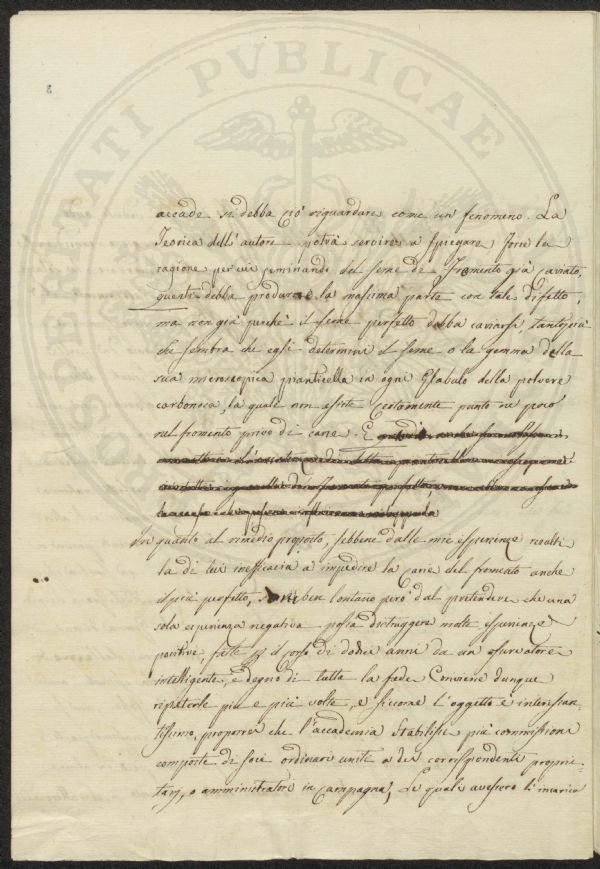 PROSPERITATI PVBLICAE
accade si debba ciò riguardare come un fenomeno. La
Teorica dell'autore potrà servire a spiegare forse la
ragione per cui seminando del seme di Fromento già cariato,
questi debba produrre la massima parte con tale difetto,
ma non già perchè il seme perfetto debba cariarsi, tantopiù
che sembra che egli determini il seme o la gemma della
sua microscopica pianticella in ogni globulo della polvere
carbonosa, la quale non esiste certamente punto ne poco
nel fromento privo di carie. E
In quanto al rimedio proposto, sebbene dalle mie esperienze risulti
la di lui inefficacia a impedire la carie del fromento anche
il più perfetto, ben lontano però dal pretendere che una
sola esperienza negativa possa distruggere molte esperienze
positive, fatte pel corso di dodici anni da un osservatore
intelligente, e degno di tutta la fede Conviene dunque
ripeterle più e più volte, e siccome l'oggetto è interessan-
tissimo, proporrei che l'accademia stabilisse più commissioni
composte di socii ordinarii uniti a dei corrispondenti proprie-
tarj, o amministratori in campagna; Le quali avessero l'incarico